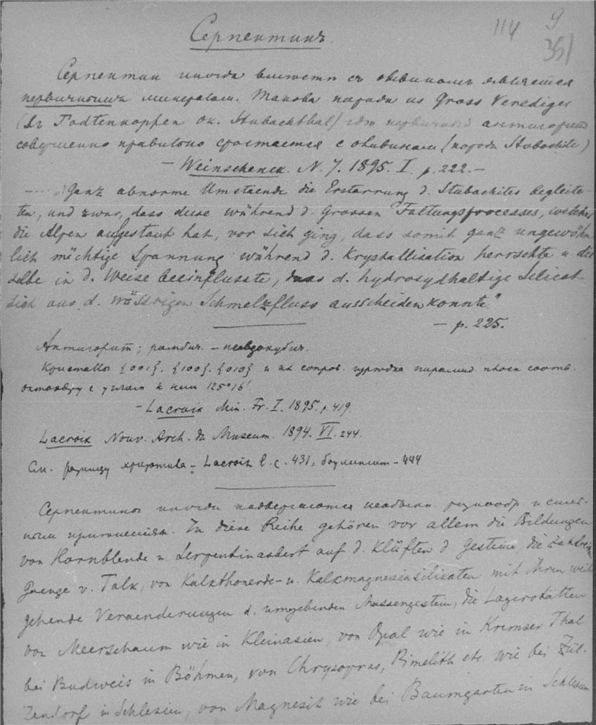 114 9
351
Серпентинъ
Серпентин иногда вместе съ оливиномъ является
первичнымъ минералом. Такова порода из Gross Venediger
(Dr Todtenkoppen ок. Stubachthal) где первичный антигорит
совершенно правильно сростается с оливином (порода Stubachite)
– Weinschenck. N. J. 1895. I. p. 222.–
Ganz abnorme Umstände die Erstarrung d. Stubachites begleite-
ten, und zwar, dass diese während d. Grossen Faltungsprocesses, welcher
die Alpen aufgestaut hat, vor sich ging, dass somit ganz ungewöhn-
lich mächtige Spannung während d. Krystallisation herrschte u die-
selbe in d. Weise beeinflusste, dass d. hydroxydhaltige Silicat
sich aus d. wässrigen Schmelzfluss ausscheiden konnte"
– p. 225.
Антигорит; ромбич. – псевдокубич.
Кристаллы {001}. {100}. {010} и
октаэдру с углом к ним 125°16'
– Lacroix Min. Fr. I. 1895. p. 419.
Lacroix Nouv. Arch. du Museum. 1894. VI. 244.
См. разницу хризотила – Lacroix l. c. 431, – 444
иногда подвергаются
In diese Reihe gehören vor allem die Bildungen
von Hornblende u Serpentinasbest auf d. Klüften d Gesteine, die
Gaenge v. Talk, von Kalkthonerde- u. Kalkmagnesiasilicaten mit ihren weit
gehende Veraenderungen d. umgebenden Massengestein, die Lagerstätten
von Meerschaum wie in Kleinasien, von Opal wie in Kremser Thal
bei Budweis in Böhmen, von Chrysopras, Pimelith etc. wie bei Zül-
zendorf in Schlesien, von Magnesit wie bei Baumgarten in Schlesien